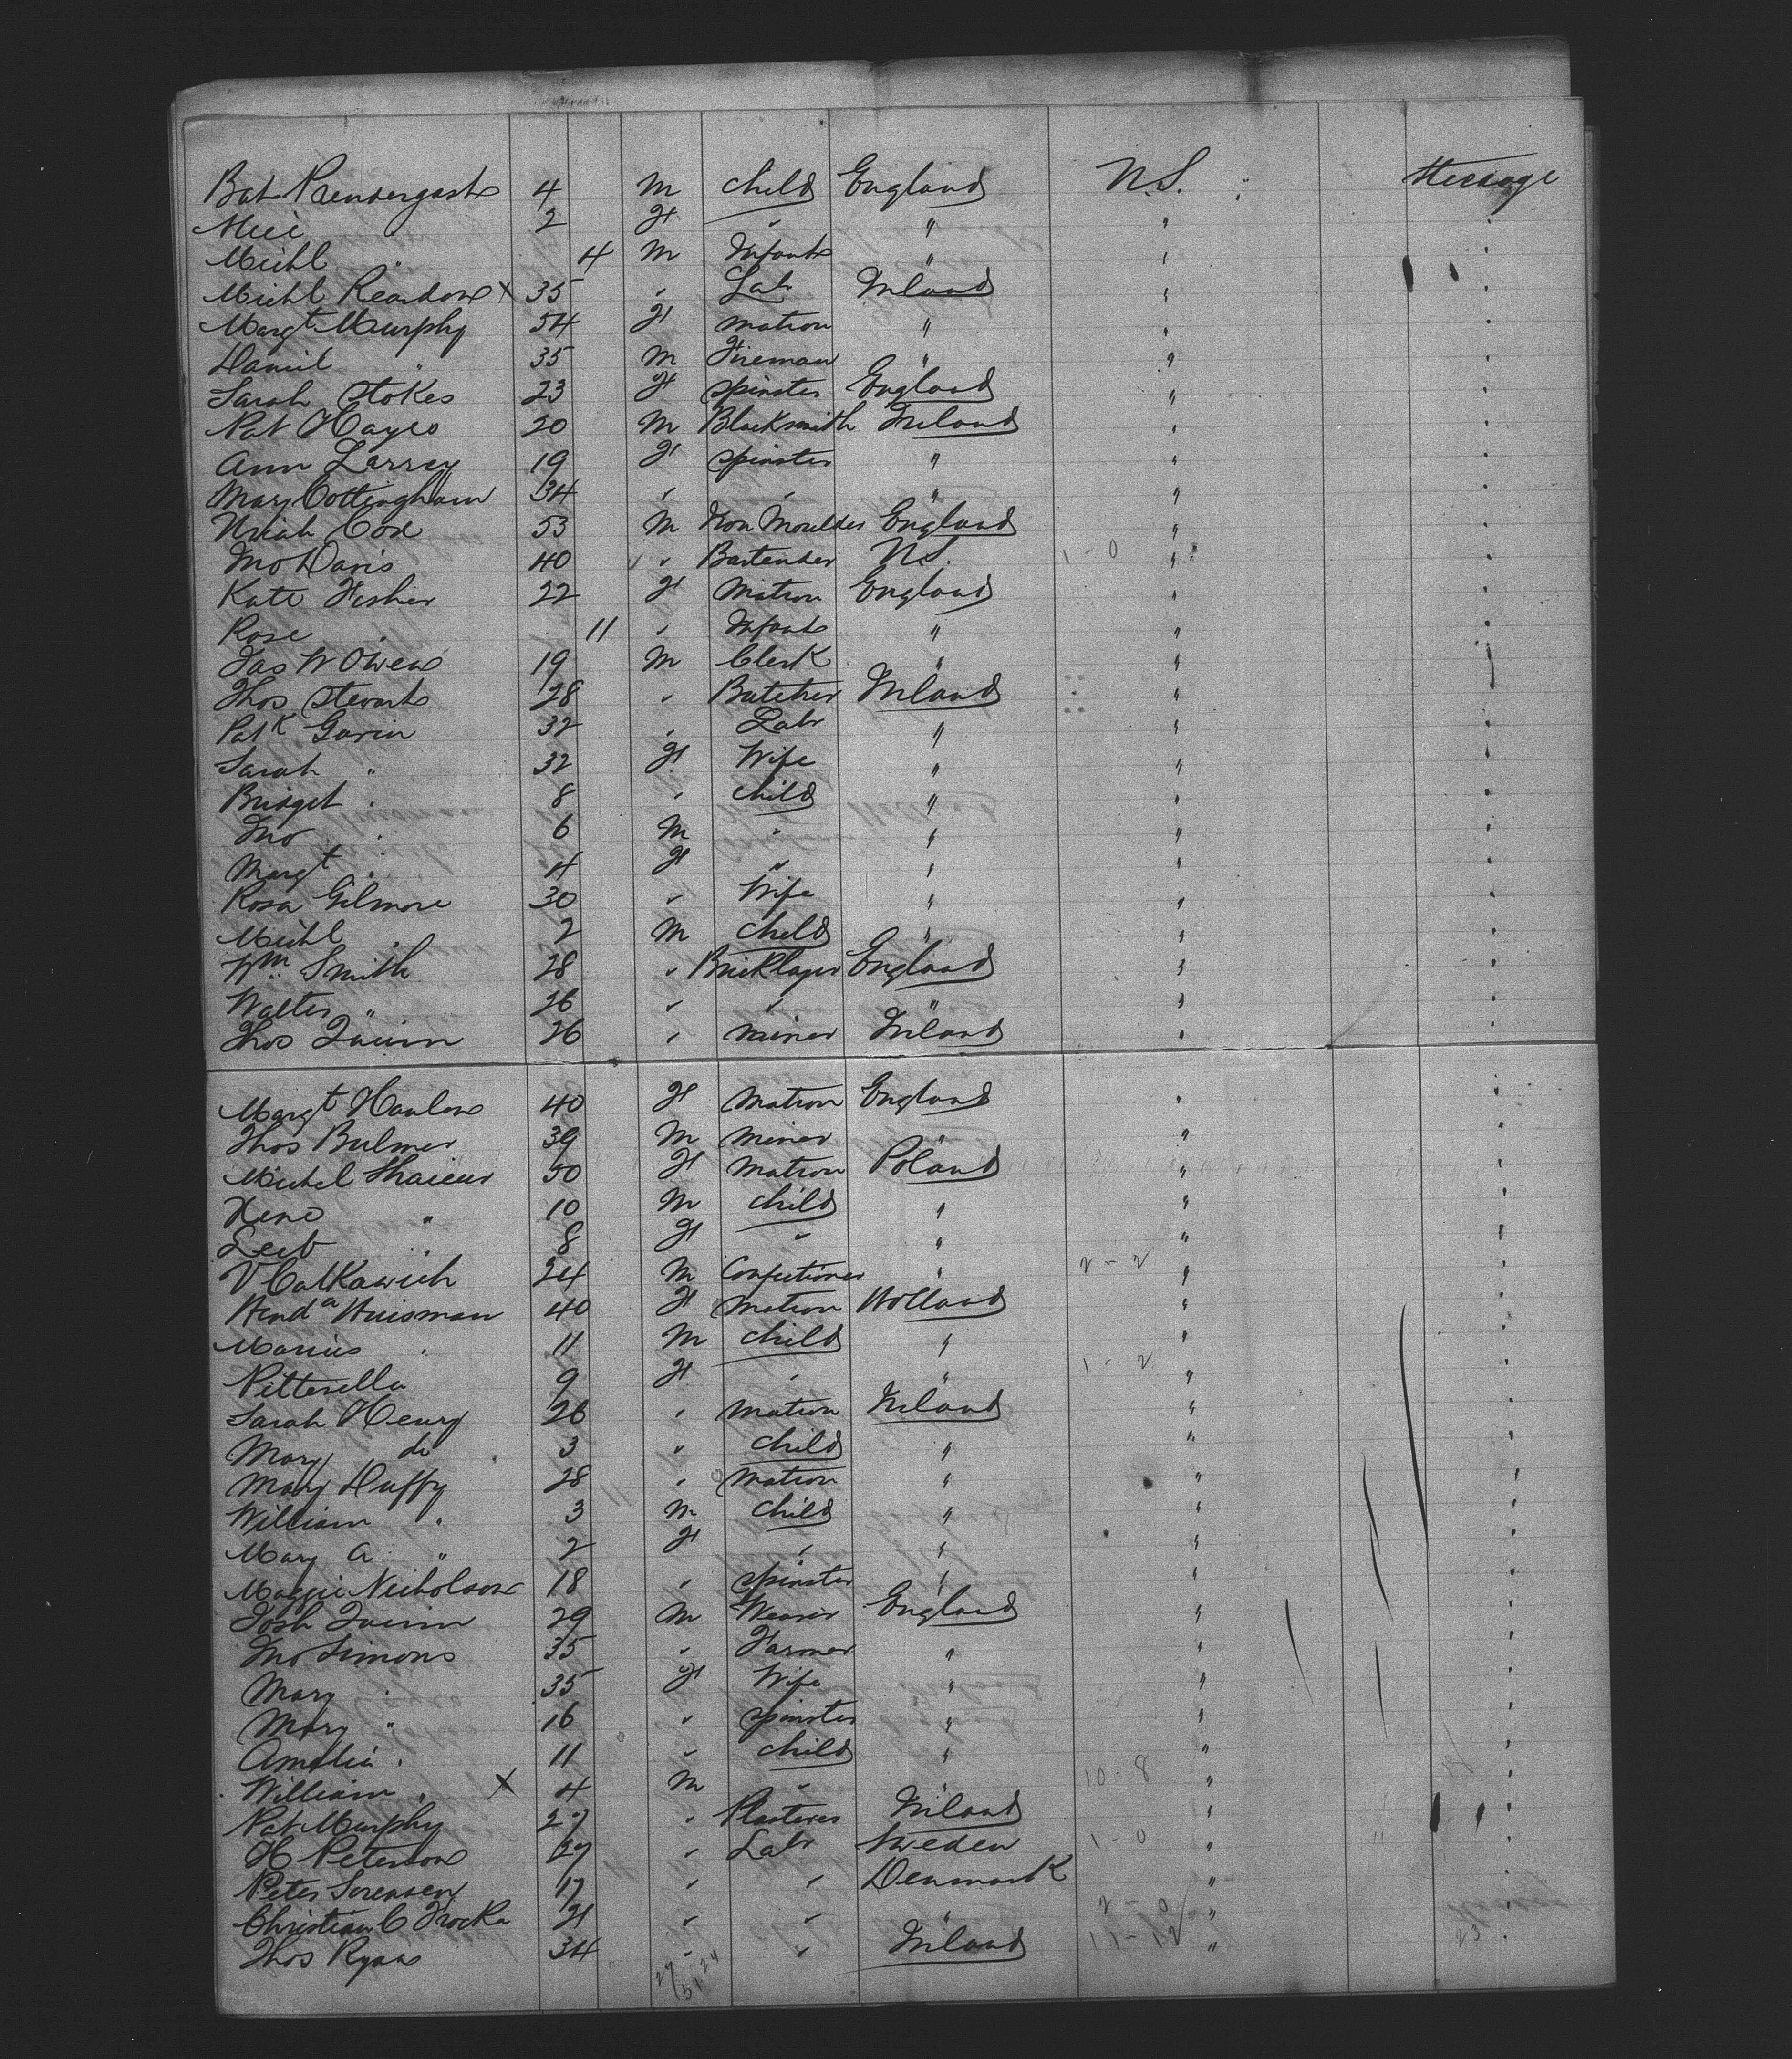 Bat Prendergast 4 M child England U.S. Steerage
Alice " 2 F " " " "
Michl " 4 M Infant " " "
Michl Reardon X 35 " Lab Ireland " "
Margt Murphy 54 F matron " " "
Daniel " 35 M Fireman " " "
Sarah Stokes 23 F spinster England " "
Pat Hayes 20 M Blacksmith Ireland " "
Ann Larrey 19 F spinster " " "
Mary Cottingham 34 " " " " "
Uriah Cox 53 M Iron Moulder England " "
Jno Davis 40 " Bartender U.S. 1-0 " "
Kate Fisher 22 F Matron England " "
Rose " 11 " Infant " " "
Jas W Owens 19 M Clerk " " "
Thos Stewart 28 " Butcher Ireland " "
Patk Gavin 32 " Labr " " "
Sarah " 32 F Wife " " "
Bridget " 8 " child " " "
Jno " 6 M " " " "
Margt " 4 F " " " "
Rosa Gilmore 30 " Wife " " "
Michl " 2 M child " " "
Wm Smith 28 " Bricklayer England " "
Walter " 26 " " " " "
Thos Quinn 26 " miner Ireland " "
Margt Hanlon 40 F Matron England " "
Thos Bulmer 39 M miner " " "
Michel 50 F Matron Poland " "
" 10 M child " " "
Leib " 8 F " " " "
V Catkawich 24 M Confectioner " 2-2 " "
Henda Huisman 40 F matron Holland " "
Marius " 11 M child " " "
Pitterella 9 F " " 1-2 " "
Sarah Henry 26 " matron Ireland " "
Mary do 3 " child " " "
Mary Duffy 28 " matron " " "
William " 3 M child " " "
Mary A " 2 F " " " "
Maggie Nicholson 18 " spinster " " "
Josh Quinn 29 M Weaver England " "
Jno Simons 35 " Farmer " " "
Mary " 35 F Wife " " "
Mary " 16 " spinster " " "
Amelia " 11 " child " " "
William " X 4 M " " 10-8 " "
Pat Murphy 27 " Plasterer Ireland " "
H Peterson 27 " Labr Sweden 1-0 " "
Peter Sorensen 17 " " Denmark " "
Christian C 21 " " " 2-0 " "
Thos Ryan 34 " " Ireland 11-12 " 23 "
27 24
51